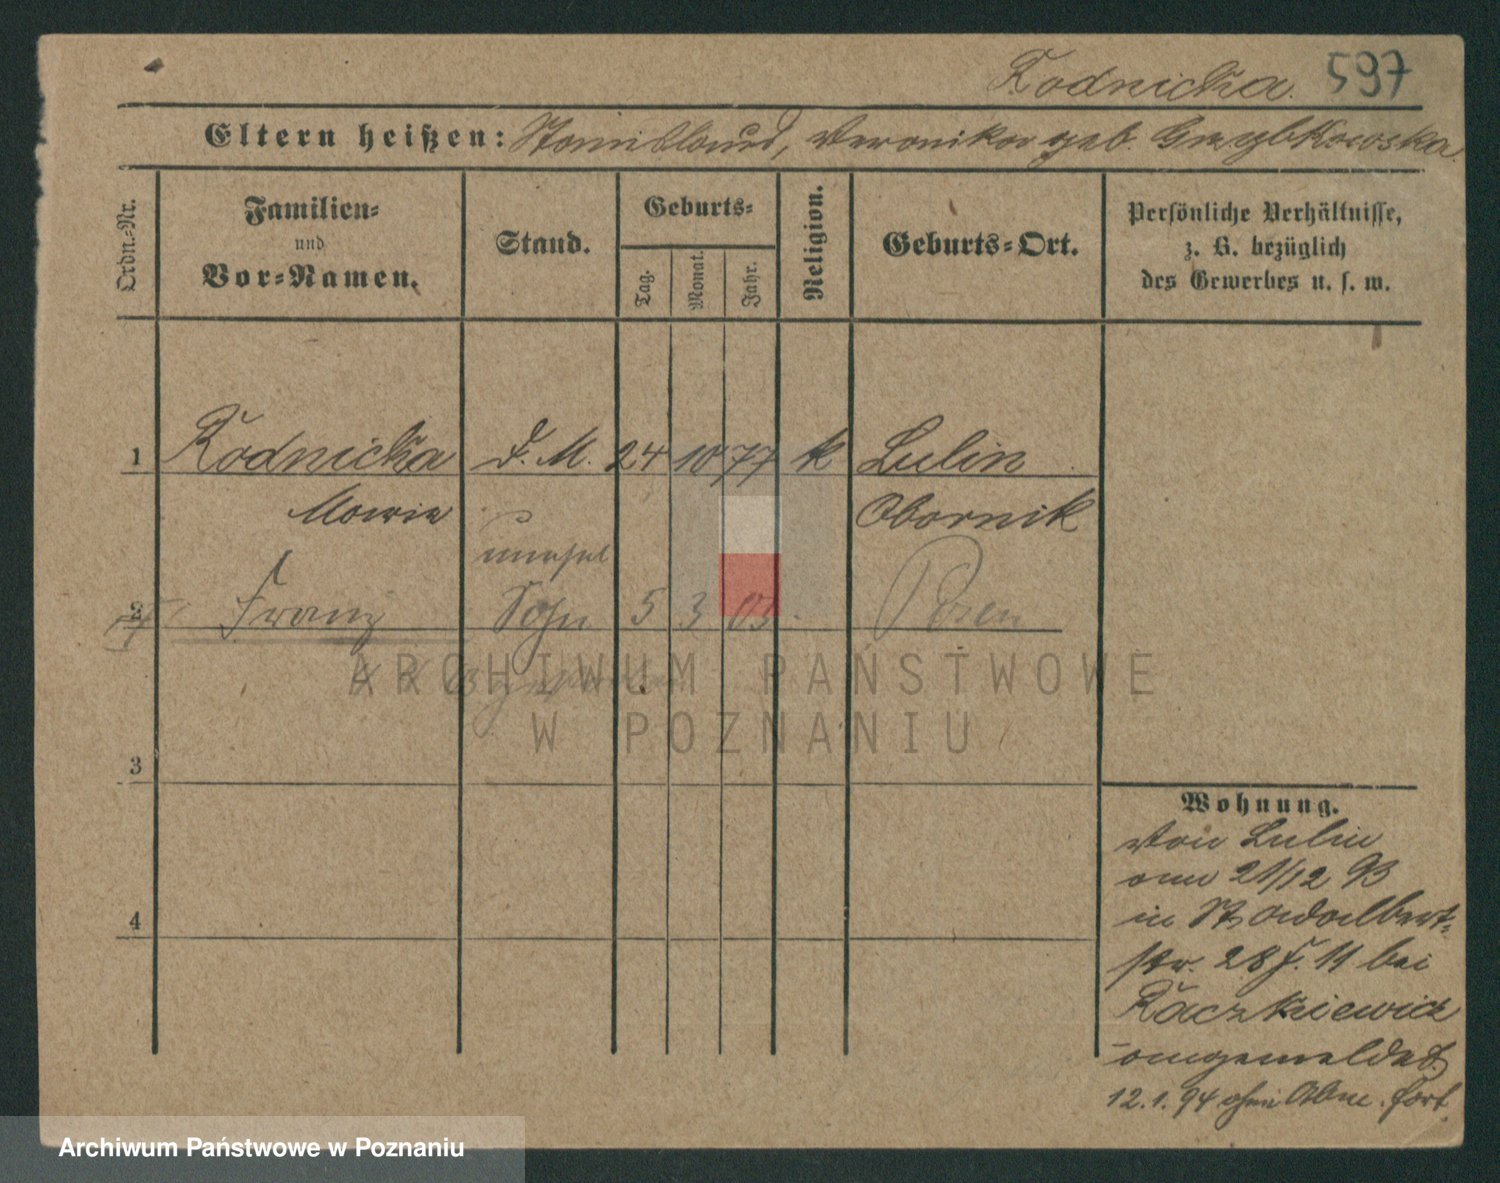 Rodnicka. 597
Eltern heißen: Stanislaus, Veronika geb. Grzybkowska
Ordn.-Nr.
Familien-
und
Vor-Namen.
Stand.
Geburts-
Tag.
Monat.
Jahr.
Religion.
Geburts-Ort.
Persönliche Verhältnisse,
z. B. bezüglich
des Gewerbes u. s. w.
1 Rodnicka D. M. 24 10 77 k Lulin
Marie Obornik
unehel
2 Franz Sohn 5 3 03 Posen
ARCHIWUM PAŃSTWOWE
W POZNANIU
3
4
Wohnung.
Von Lulin
am 21/12 93
in St. Adalbert-
str. 28 bei
Raczkiewicz
angemeldet.
12.1.94 ohne Abm. fort.
Archiwum Państwowe w Poznaniu